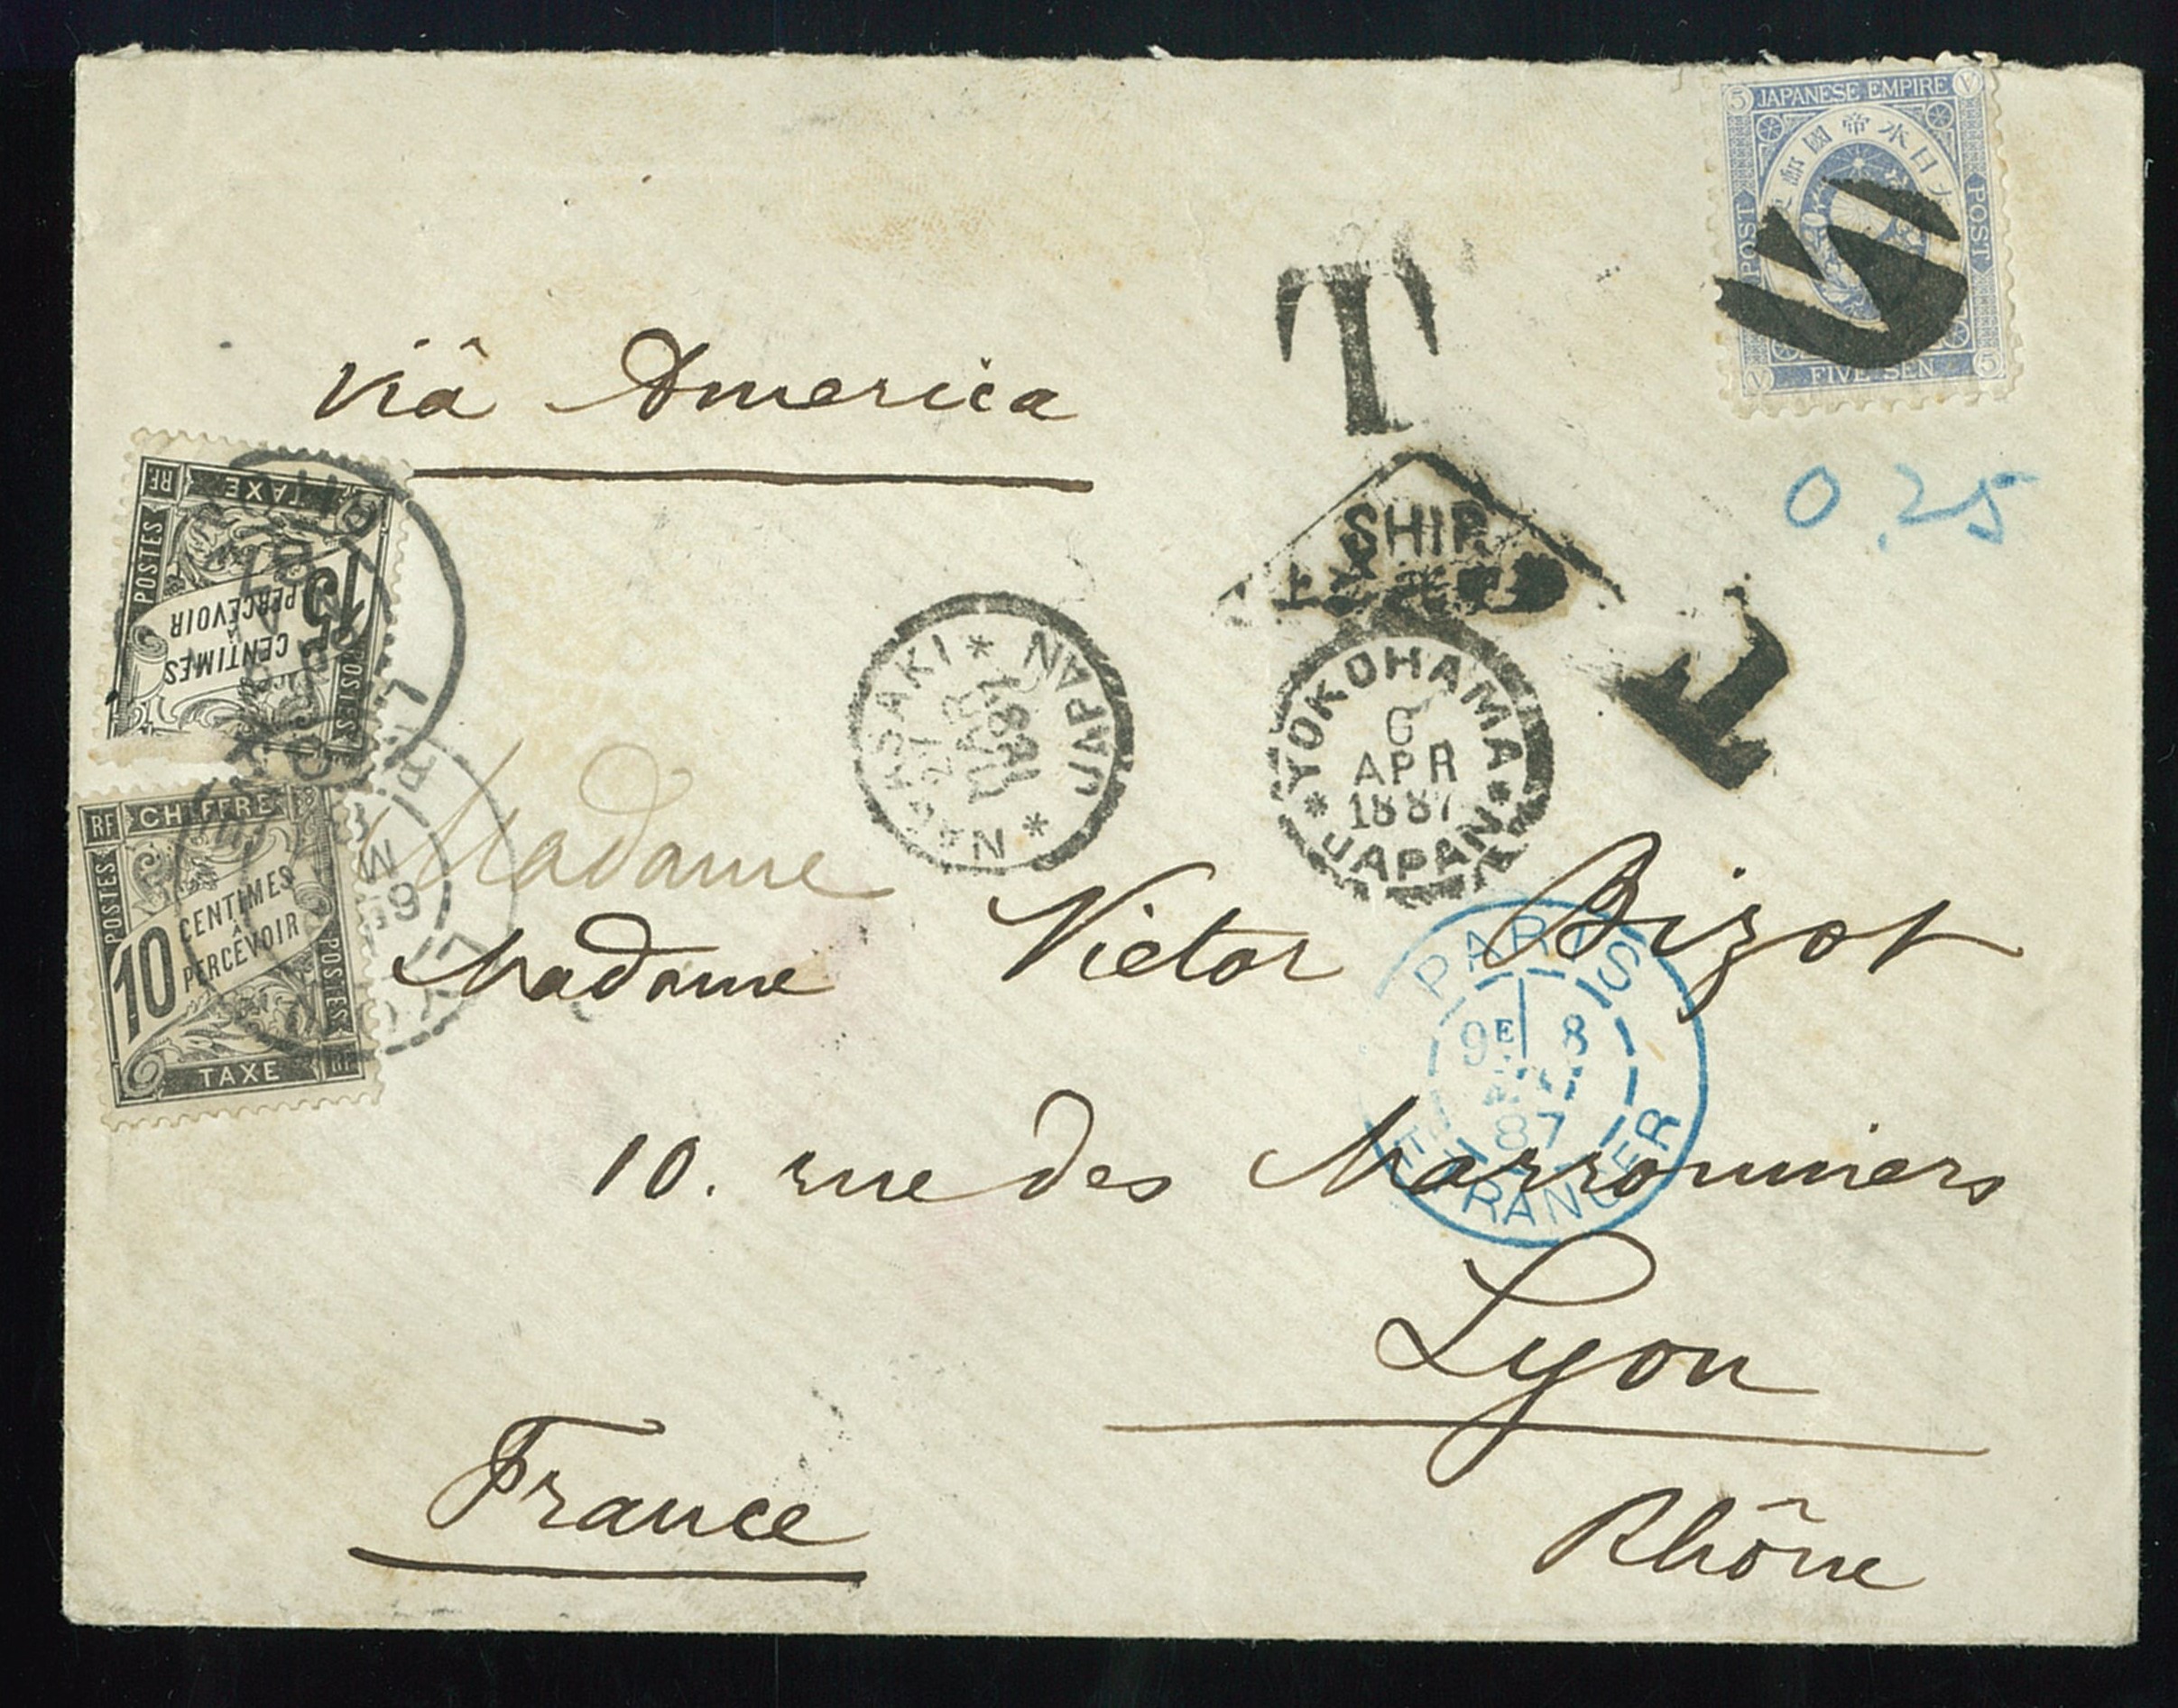 5 JAPANESE EMPIRE V
大日本帝國郵便
POST
POST
V FIVE SEN 5
T
viâ America
0,25
SHIP
T
RF TAXE
POSTES
15
CENTIMES
À
PERCEVOIR
POSTES
NAGASAKI * JAPAN *
1887
YOKOHAMA
6
APR
1887
* JAPAN *
RF CHIFFRE
POSTES
10 CENTIMES
À
PERCEVOIR
POSTES
TAXE RF
Madame
Madame Victor Bizot
PARIS
9E 8
87
ETRANGER
10. rue des Marronniers
Lyon
Rhône
France